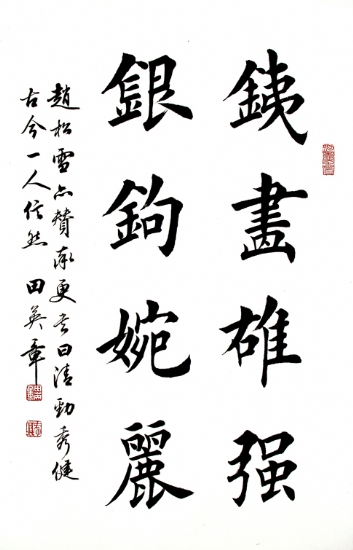 鐵畫雄强
銀鉤婉麗
趙松雪亦贊率更書曰清勁秀健
古今一人信然 田英章